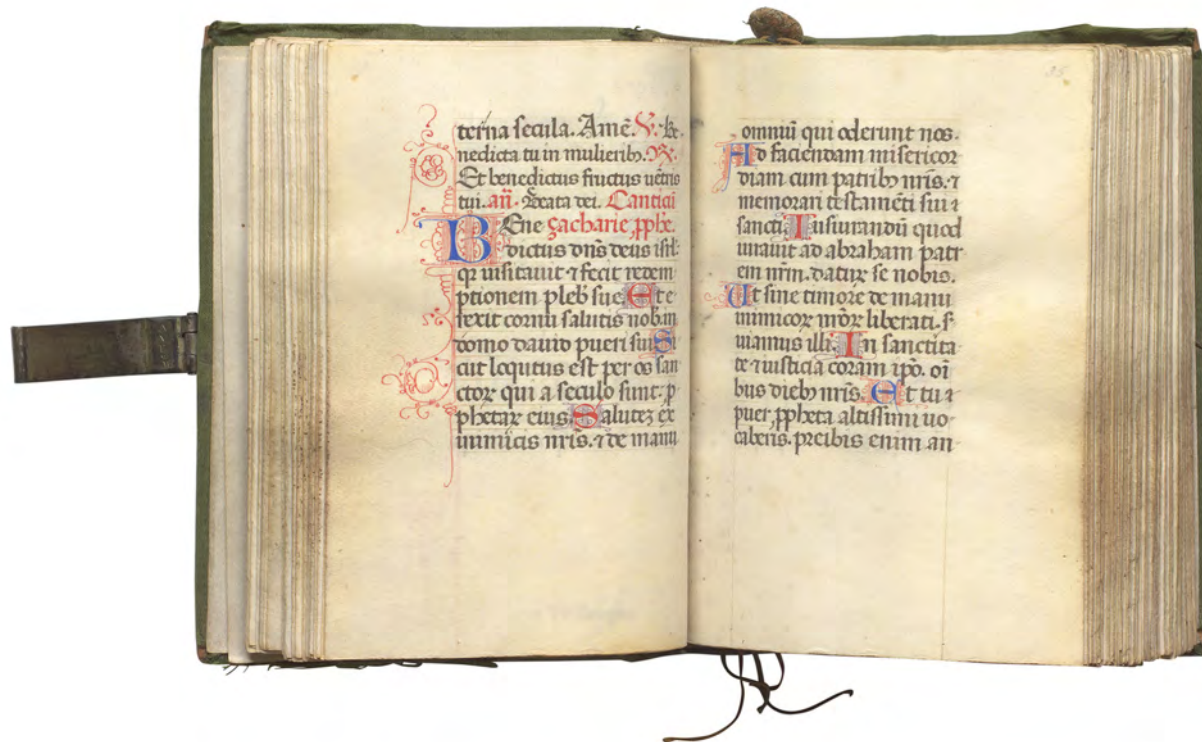 terna secula. Amē. V. Be
nedicta tu in mulierib₉. R.
Et benedictus fructus uētris
tui. añ. Beata dei. Canticū
BEne zacharie ꝓphē.
dictus dn̄s deus isrl̄
qꝛ uisitauit ⁊ fecit redem
ptionem pleb̄ sue. Et e
rexit cornu salutis nob̄. in
domo dauid pueri sui. Si
cut loqutus est per os san
ctoꝝ qui a seculo sunt. ꝓ
phetaꝝ eius. Salutez ex
inimicis nr̄is. ⁊ de manu
35
omniū qui oderunt nos.
Ad faciendam misericor
diam cum patrib₉ nr̄is. ⁊
memorari testamēti sui ⁊
sancti. Iusiurandū quod
iurauit ad abraham patr
em nr̄m. daturꝝ se nobis.
Ut sine timore de manu
inimicoꝝ nr̄oꝝ liberati. s̄
uiamus illi. In sanctita
te ⁊ iusticia coram ip̄o. oī
bus dieb₉ nr̄is. Et tu ⁊
puer, ꝓpheta altissimi uo
caberis. preibis enim an